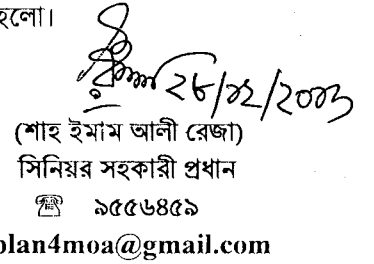 হলো।
২৮/১২/২০১৩
(শাহ ইমাম আলী রেজা)
সিনিয়র সহকারী প্রধান
☏ ৯৫৫৬৪৫৯
plan4moa@gmail.com